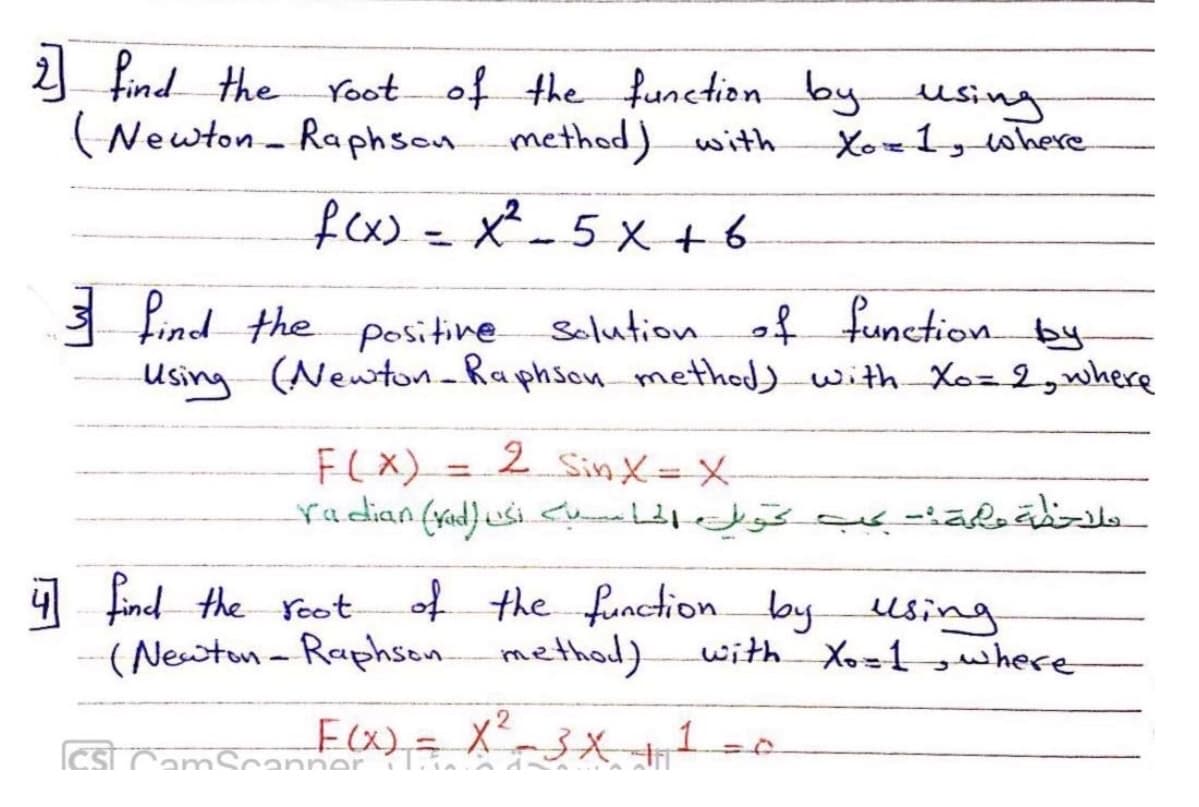 2] find the root of the function by using
(Newton-Raphson method) with X₀=1, where
f(x) = x² - 5x + 6
3] find the positive solution of function by
using (Newton-Raphson method) with X₀=2, where
F(X) = 2 Sin X = X
ملاحظة مهمة :- يجب تحويل الحاسبة الى radian (rad)
4] find the root of the function by using
(Newton-Raphson method) with X₀=1, where
F(X) = X² - 3X + 1 = 0
CS CamScanner